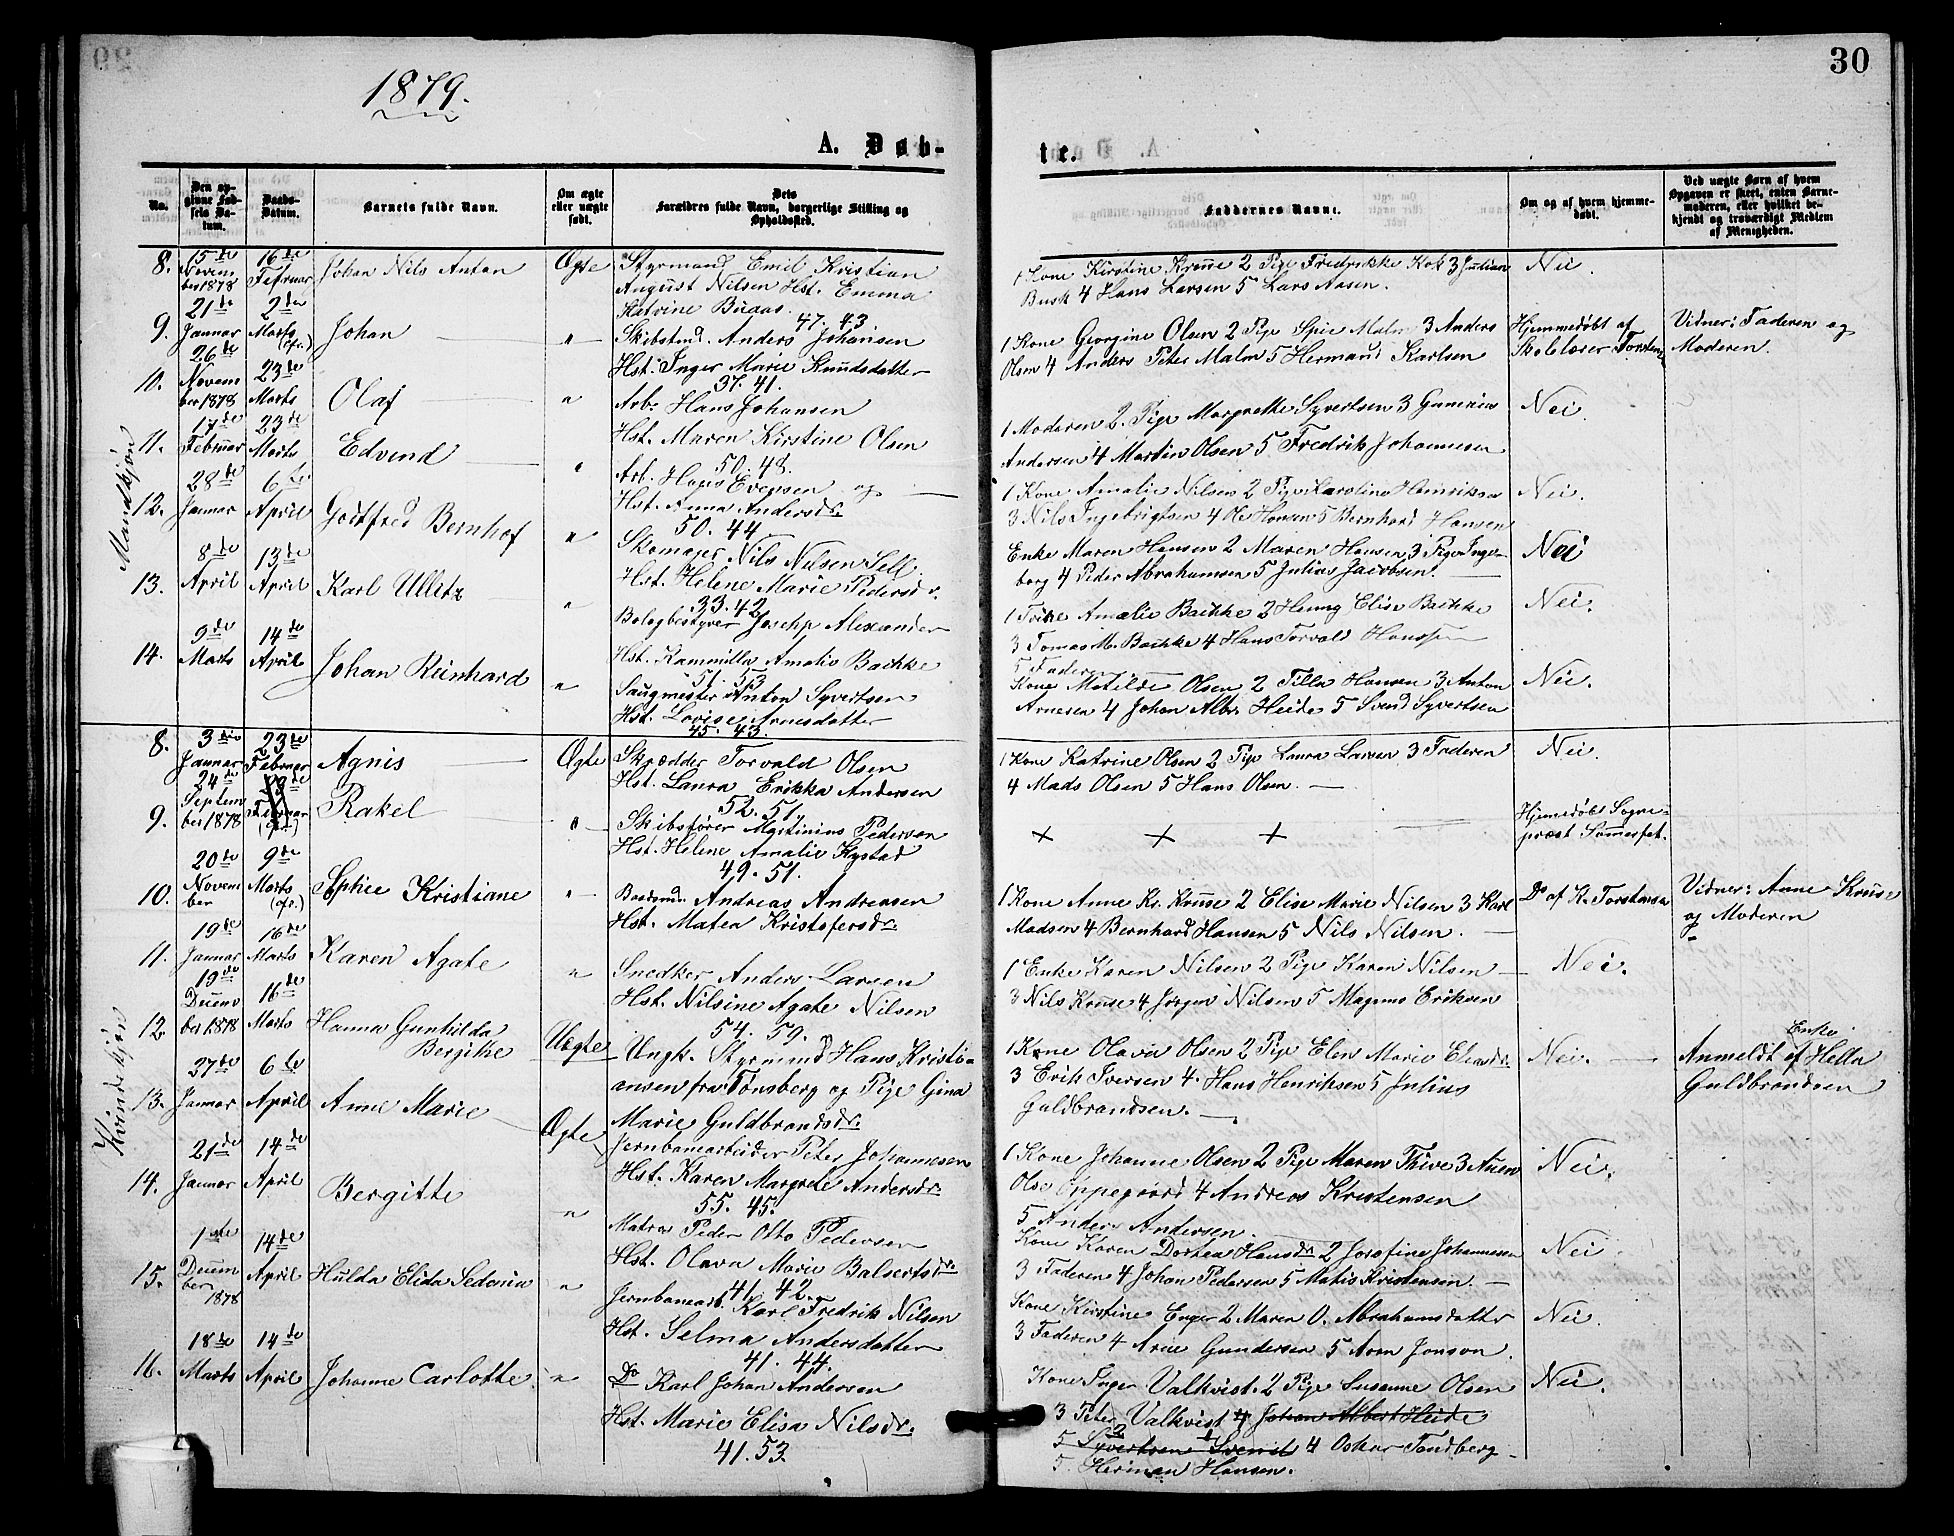 30
1879.
A. Døb-
te.
No.
Den opgivne Fødsels Datum.
Daabs-Datum.
Barnets fulde Navn.
Om ægte eller uægte født.
Dets Forældres fulde Navn, borgerlige Stilling og Opholdssted.
Faddernes Navne.
Om og af hvem hjemmedøbt.
Ved uægte Børn af hvem Opgaven er skeet, enten Barnemoderen, eller hvilket bekjendt og troværdigt Medlem af Menigheden.
Mandkjøn
8. 15de November 1878 16de Februar Johan Nils Anton Ægte Styrmand Emil Kristian
August Nilsen Hst. Emma
Katrine Buaas.
47. 43
1 Kone Kirstine Kruse 2 Pige Fredrikke Kok 3 Julian
Busk 4 Hans Larsen 5 Lars Aasen.
Nei.
9. 21de Januar 2den Marts (ofr.) Johan " Skibstmd. Anders Johansen
Hst. Inger Marie Knudsdatter
37. 41.
1 Kone Georgine Olsen 2 Pige Malm 3 Anders
Olsen 4 Anders Peter Malm 5 Hermand Karlsen
Hjemmedøbt af
Skolelærer Torstens
Vidner: Faderen og
Moderen.
10. 26de November 1878 23de Marts Olaf " Arb. Hans Johansen
Hst. Maren Kirstine Olsen
50. 48.
1 Moderen 2. Pige Margrethe Syvertsen 3
Andersen 4 Martin Olsen 5 Fredrik Johannesen
Nei.
11. 17de Februar 23de Marts Edvind " Arb. Hans Evensen og
Hst. Anna Andersdr.
50. 44
1 Kone Amalie Nilsen 2 Pige Karoline Henriksen
3 Nils Ingebrigtsen 4 Ole Hansen 5 Bernhard Hansen
Nei.
12. 28de Januar 6te April Godtfred Bernhof " Skomager Nils Nilsen Sell
Hst. Helene Marie Pedersdr.
33. 42
Enke Maren Hansen 2 Maren Hansen 3 Pige Ingeborg 4 Peder Abrahamsen 5 Julius Jacobsen.
Nei
13. 8de April 13de April Karl " Bologbestyrer Josehp Alexander
Hst. Kammilla Amalie Bachke
51. 53
1 Amalie Bachke 2 Elise Bachke
3 Tomas M. Bachke 4 Hans Torvald Hanssen
5 Faderen
Nei.
14. 9de Marts 14de April Johan Reinhard " Saugmester Anton Syvertsen
Hst. Lovise Arnesdatter
45. 43.
Kone Matilde Olsen 2 Tilla Hansen 3 Anton
Arnesen 4 Johan Albr. Heide 5 Svend Syvertsen
Nei.
Kvindekjøn
8. 3die Januar 23de Februar Agnis Ægte Skrædder Torvald Olsen
Hst. Laura Erikka Andersen
52. 51.
1 Kone Katrine Olsen 2 Pige Laura Larsen 3 Faderen
4 Mads Olsen 5 Hans Olsen.
Nei.
9. 24de September 1878 23de Februar (ofr.) Rakel " Skibsfører Martinius Pedersen
Hst. Helene Amalie Kystad
49. 51.
+ + +
Hjemmedøbt Sogne-
præst Sommerfet.
10. 20de November 9de Marts (ofr.) Sphie Kristiane " Baadsmd. Andreas Andresen
Hst. Matea Kristofersdr.
1 Kone Anne Kr. Kruse 2 Elise Marie Nilsen 3 Karl
Madsen 4 Bernhard Hansen 5 Nils Nilsen.
Do af Kr. Torstensen
Vidner: Anne Kruse
og Moderen
11. 19de Januar 16de Marts Karen Agate " Snedker Anders Larsen
Hst. Nilsine Agate Nilsen
54. 59.
1 Enke Karen Nilsen 2 Pige Karen Nilsen
3 Nils Kruse 4 Jørgen Nilsen 5 Magnus Eriksen
Nei.
12. 19de December 1878 16de Marts Hanna Gunhilda
Bergithe Uægte Ungk. Styrmand Hans Kristi-
ansen fra Tønsberg og Pige Gina
Marie Guldbrandsdr.
1 Kone Olava Olsen 2 Pige Elen Marie Eliasdr.
3 Erik Iversen 4. Hans Henriksen 5 Julius
Guldbrandsen.
Nei.
Anmeldt af Enke Hella
Guldbrandsen
13. 27de Januar 6te April Anne Marie Ægte Jernbanearbeider Peter Johannesen
Hst. Karen Margrete Andersdr.
55. 45.
1 Kone Johanne Olsen 2 Pige Maren Thive 3
Olsen Oppegaard 4 Andreas Kristensen
5 Anders Andersen.
Nei.
14. 21de Januar 14de April Bergitte " Matros Peder Otto Pedersen
Hst. Olava Marie Balsertsdr.
41. 42.
Kone Karen Dorhea Hansdr. 2 Josefine Johannesen
3 Faderen 4 Johan Pedersen 5 Matis Kristensen.
Nei.
15. 1ste December 1878 14de April Hulda Elida Sedonia " Jernbanearb. Karl Fredrik Nilsen
Hst. Selma Andersdatter
41. 44.
Kone Kirstine Enger 2 Maren O. Abrahamsdatter
3 Faderen 4 Arne Gundersen 5 Aron Jonson.
Nei.
16. 18de Marts 14de April Johanne Carlotte. " Do Karl Johan Andersen
Hst. Marie Elisa Nilsdr.
41. 53.
Kone Inger Valkvist. 2 Pige Susanne Olsen
3 Peter Valkvist 4 Johan Albert Heide
5 Syvertsen Svend 4 Oskar Tandberg
5. Herman Hansen.
Nei.